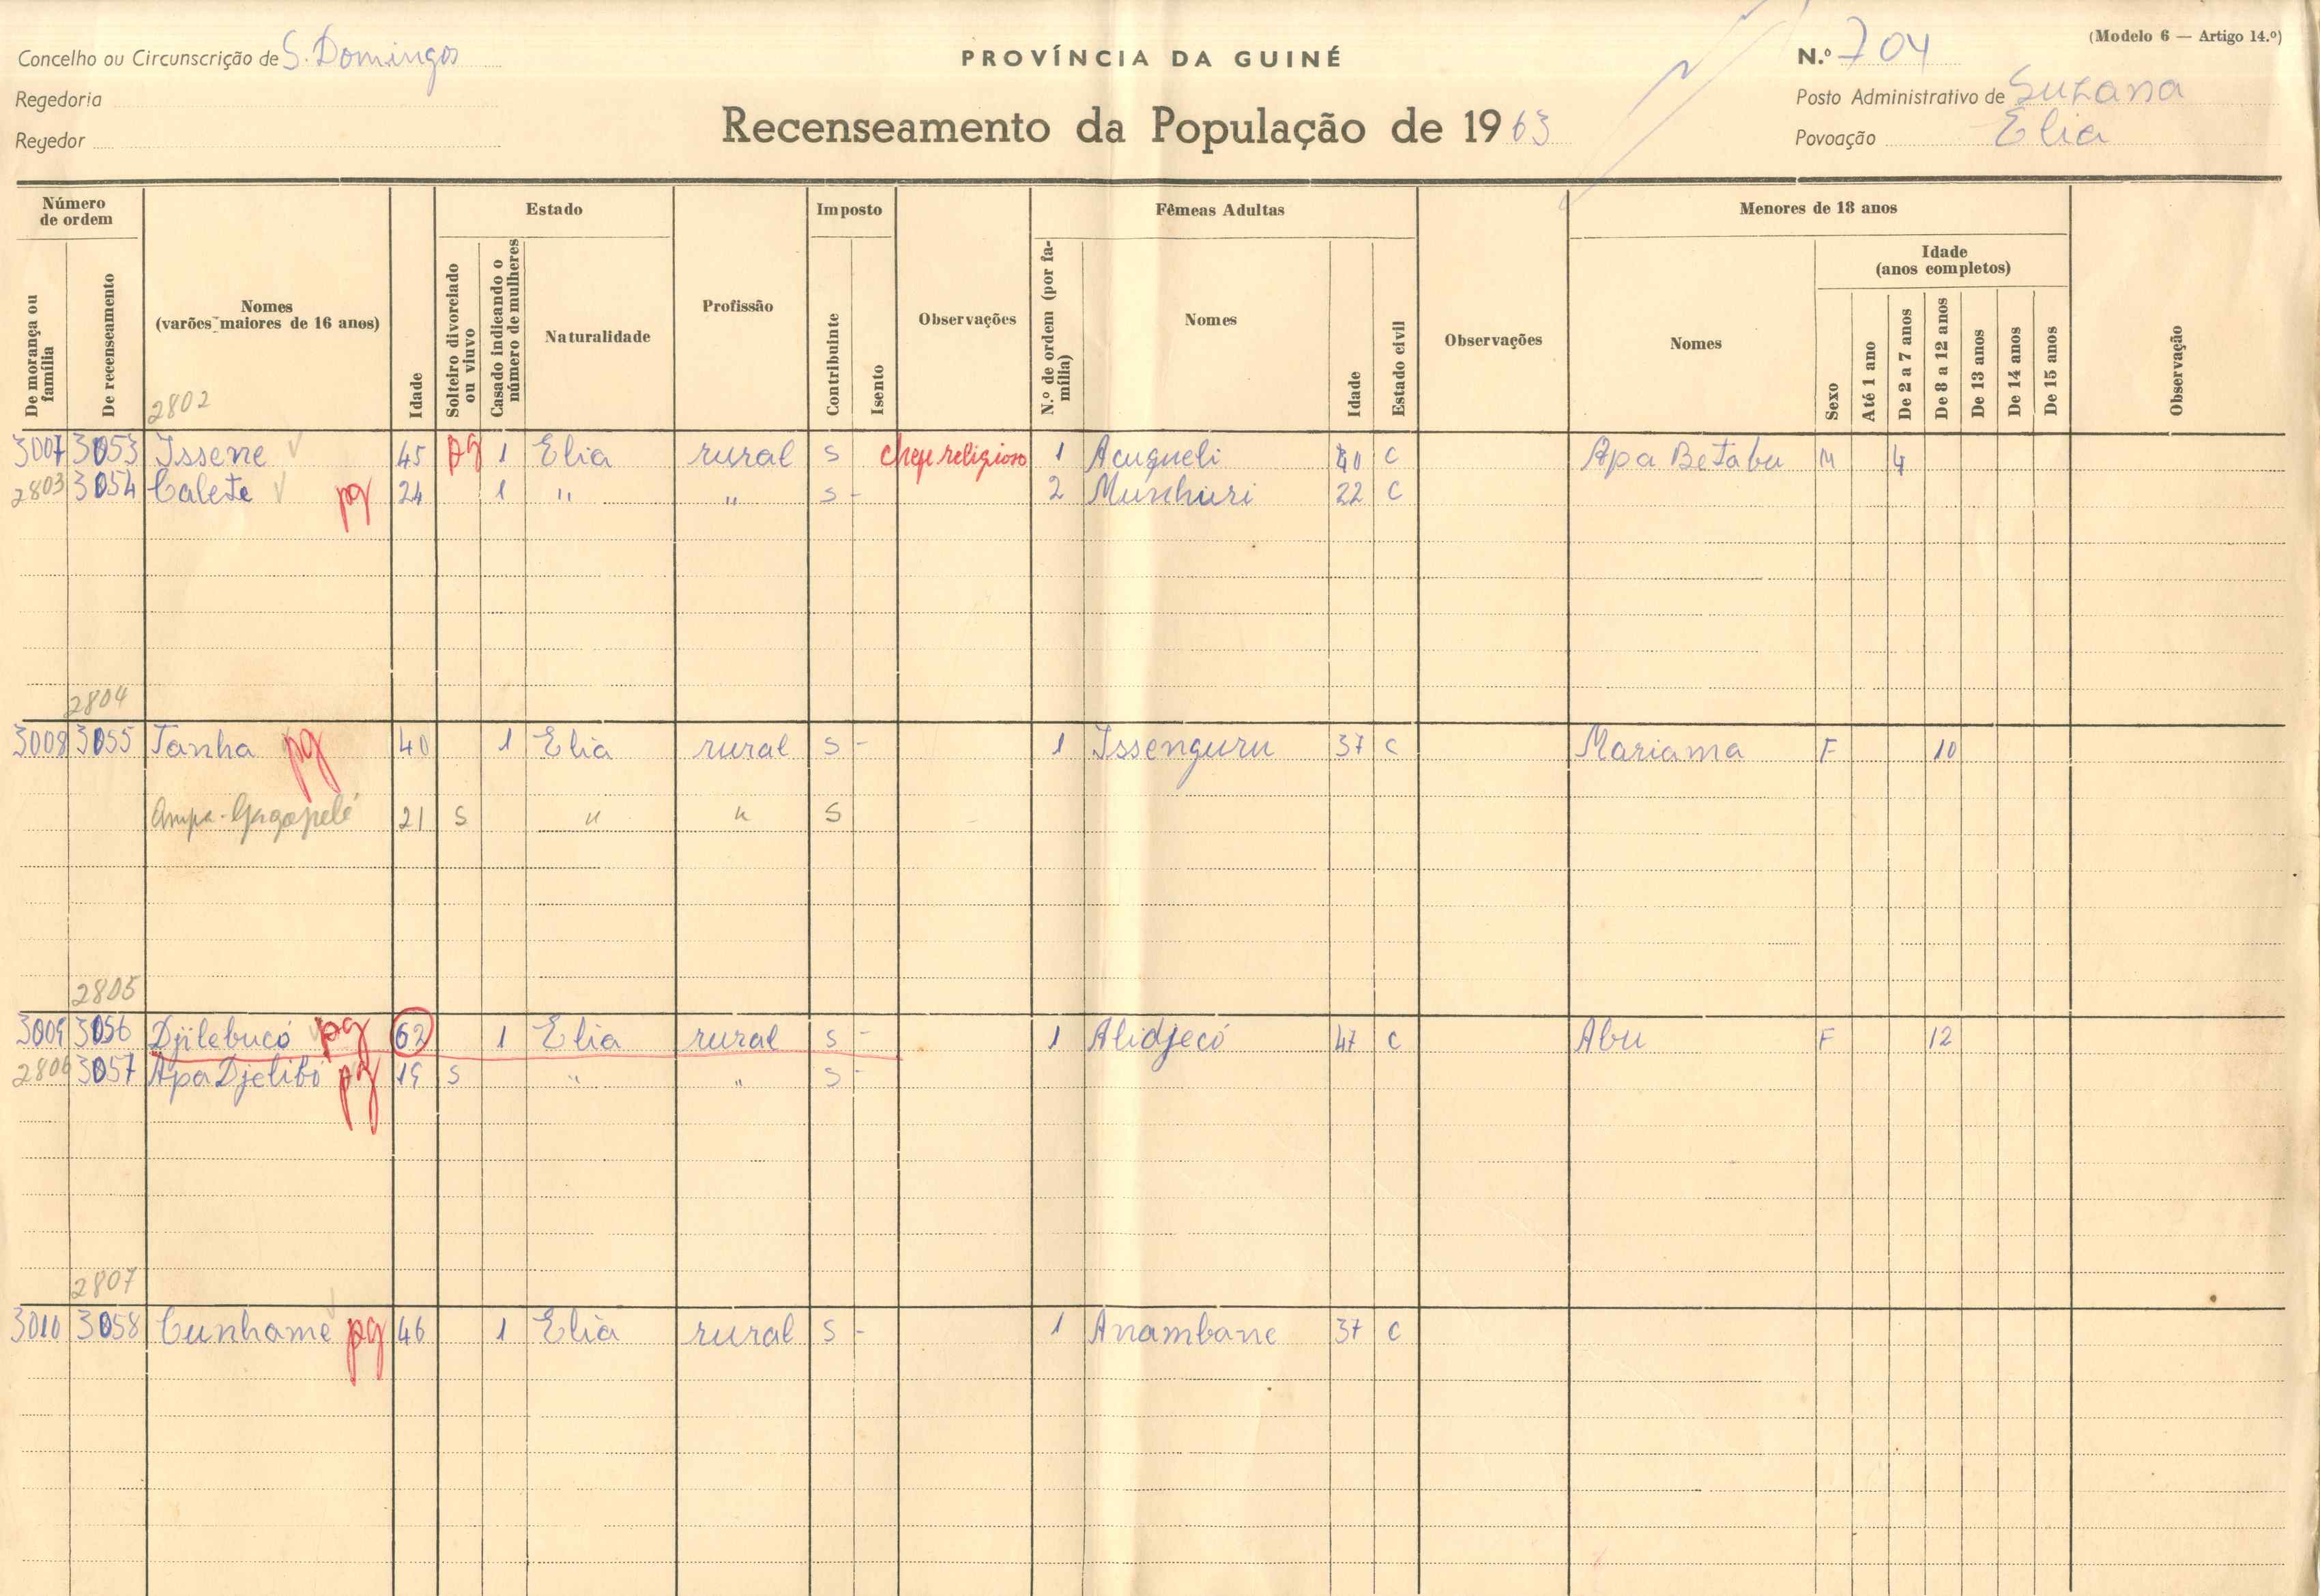 (Modelo 6 — Artigo 14.º)
Concelho ou Circunscrição de S. Domingos
PROVÍNCIA DA GUINÉ
N.º 704
Regedoria
Posto Administrativo de Suzana
Recenseamento da População de 1963
Regedor
Povoação Elia
Número de ordem
Estado
Imposto
Fêmeas Adultas
Menores de 18 anos
De morança ou família
De recenseamento
Nomes (varões maiores de 16 anos)
Idade
Solteiro divorciado ou viuvo
Casado indicando o número de mulheres
Naturalidade
Profissão
Contribuinte
Isento
Observações
N.º de ordem (por família)
Nomes
Idade
Estado civil
Observações
Nomes
Sexo
Idade (anos completos)
Até 1 ano
De 2 a 7 anos
De 8 a 12 anos
De 13 anos
De 14 anos
De 15 anos
Observação
2802
3007 3053 Issene 45 pg 1 Elia rural s chefe religioso 1 Acugueli 40 C Apa Betabu M 4
2803 3054 Calete pg 24 1 " " s - 2 Munhuri 22 C
2804
3008 3055 Tanha pg 40 1 Elia rural s - 1 Issenguru 37 C Mariama F 10
21 S " " S
2805
3009 3056 Djilebucó pg 62 1 Elia rural s - 1 Alidjecó 47 C Abu F 12
2806 3057 Apa Djelibó pg 19 S " " s -
2807
3010 3058 Cunhame pg 46 1 Elia rural s - 1 Anambane 37 C